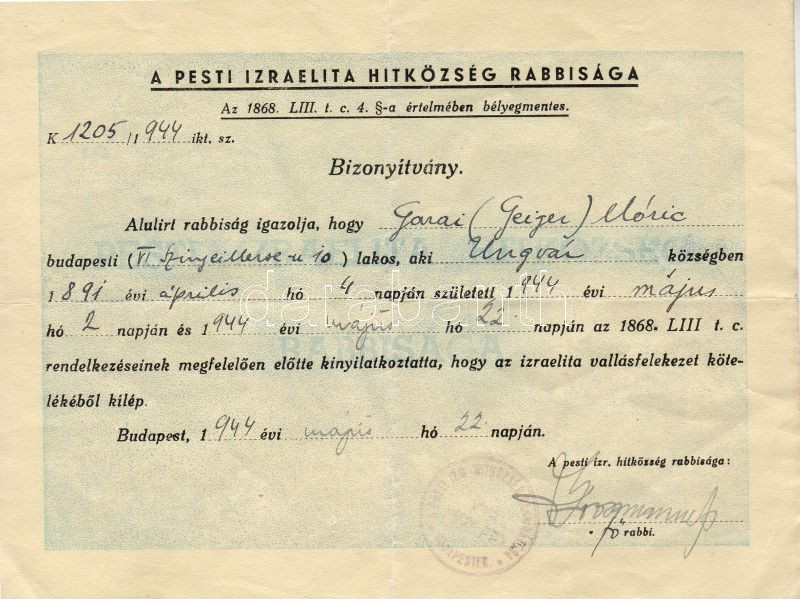 A PESTI IZRAELITA HITKÖZSÉG RABBISÁGA
Az 1868. LIII. t. c. 4. §-a értelmében bélyegmentes.
K 1205/1944 ikt. sz.
Bizonyítvány.
Alulirt rabbiság igazolja, hogy Garai (Geiger) Móric
budapesti (VI Szinyei Merse u 10) lakos, aki Ungvár községben
1891 évi április hó 4 napján született 1944 évi május
hó 2 napján és 1944 évi május hó 22 napján az 1868. LIII t. c.
rendelkezéseinek megfelelően előtte kinyilatkoztatta, hogy az izraelita vallásfelekezet köte-
lékéből kilép.
Budapest, 1944 évi május hó 22 napján.
A pesti izr. hitközség rabbisága:
fő rabbi.